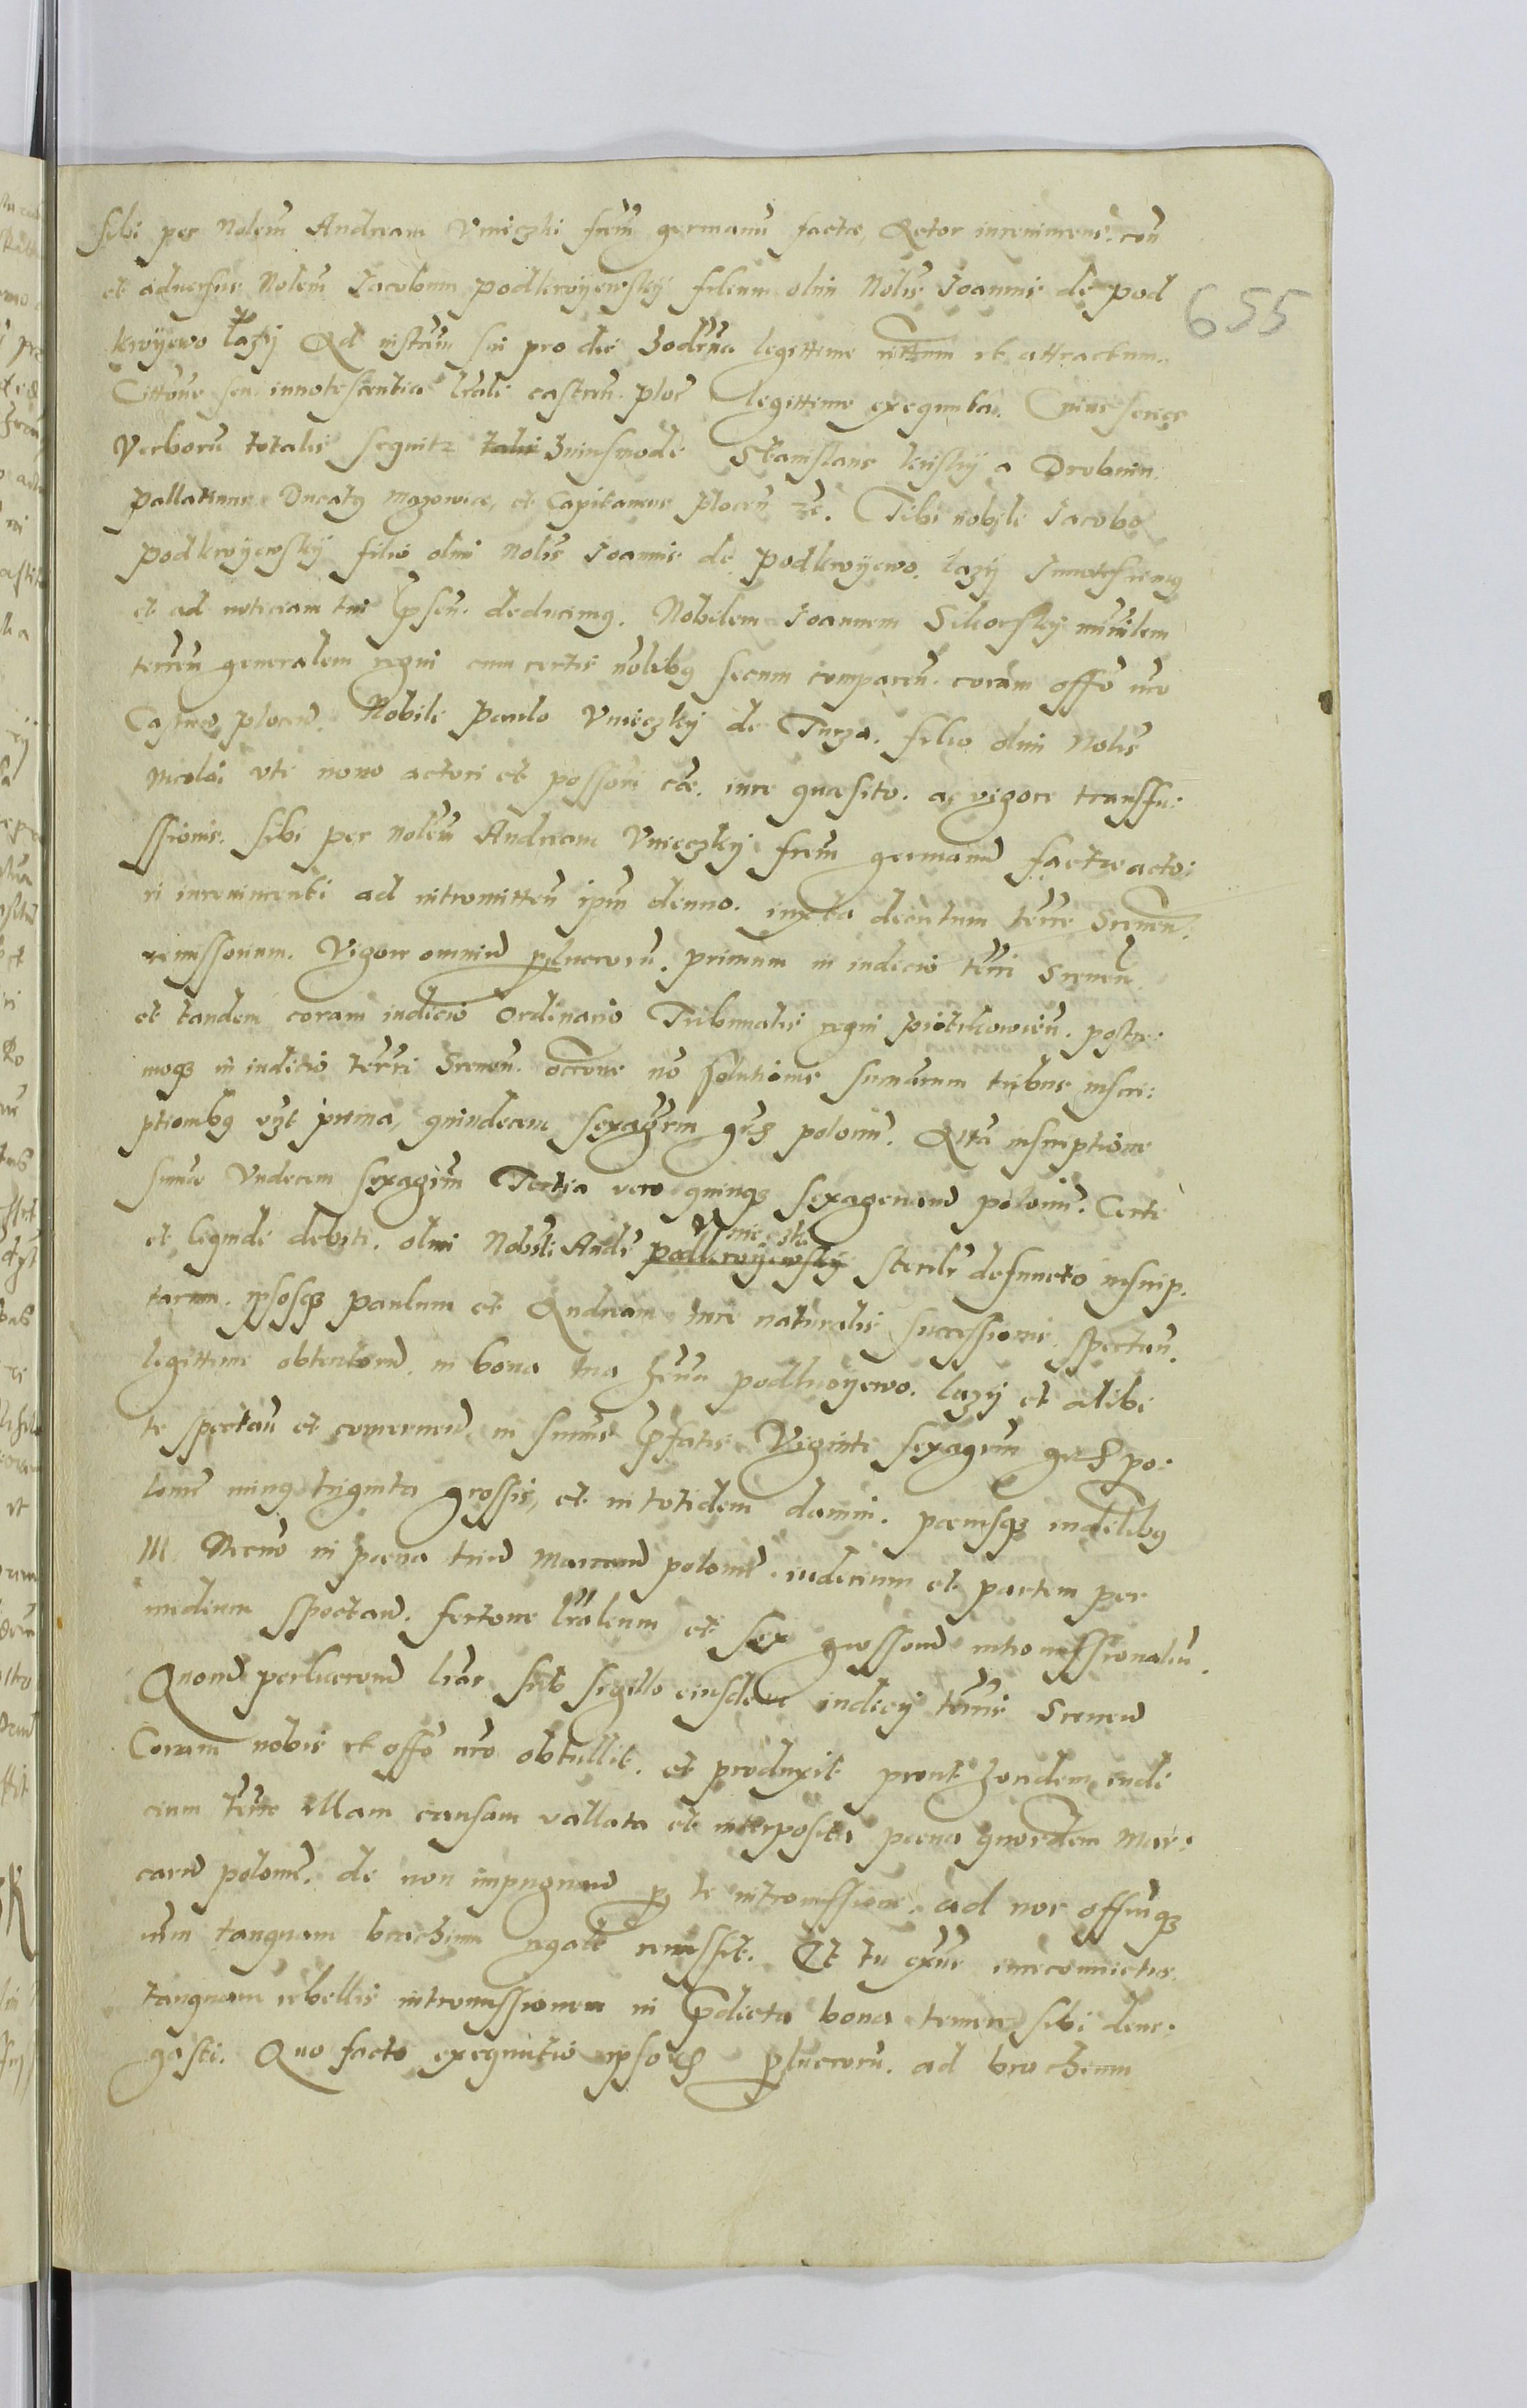 sibi per Nolem Andream Vnieczki frem germanu factae, Actor inreuincens. con
et aduersus Nolem Jacobum podkroÿewskÿ filium olim Nolis Joannis de pod
kroÿewo Łazÿ Ad instam sui pro die hodierna legittime rittum et attractum.
Cittõne seu innotescentia lrali castren. ploc legittime exequuta. Cuius series
Verboru totalis sequitz talis huiusmodi Stanislaus kriskÿ a Drobnin.
pallatinus Ducatus Mazowiae, et Capitaneus plocen etc. Tibi nobili Jacobo
podkroÿewskÿ filio olim Nolis Joannis de podkroÿewo. Łazÿ Innotescimus
et ad noticiam tui psen. deducimus. Nobilem Joannem Sikorskÿ minilem
terren generalem regni cum certis nolibus secum comparen. coram offo nro
Castren plocen. Nobili paulo Vnieczkÿ de Turza. filio olim Nolis
Nicolai vti nono actori et possori cae. iure quaesito. ac vigore transfu:
ssionis. sibi per nolem Andream Vnieczkÿ frem germanu factae acto:
ri inreuincenti ad intromitten ipm denuo. iuxta decretum terre Srenen.
remissorium. Vigore omniu plucroru. primum in iudicio terri Srenen.
et tandem coram iudicio ordinario Tribunalis regni piotrkowien. postre:
moq3 in iuditio terri Srenen. occõne no solutionis sumarum tribus inscri:
ptionibus vzt prima, quindecim sexagem gros polonin. Altã inscriptione
sumae Vndecem sexagem Tertia vero quinq3 sexagenaru polonin. Certi
et liquidi debiti. olim Nobili Andr podkroÿewskÿ Vnieczki sterilr defuncto inscrip.
tarum. ipsosq3 paulum et Andream iure naturalis successionis spectan.
legittime obtentoru. in bona tua hrria podkroÿewo. łazÿ et alibi
te spectan et concernen. in sumis pfatis Viginti sexagem gros po:
lonin minus triginta grossis, et in totidem damni. poenisq3 iudilibus
III. Necno in poena triu Marcaru polonin. iudicium et partem per
medium spectan. fertone lralium et sex grossoru intromissionaliu.
Quoru perlucroru lras sub sigillo eiusdem iudicÿ terris Srenen
Coram nobis et offo nro obtullit. et produxit prout horidem iudi
cium terre illam causam vallata et interposita poena quordem mar:
caru polonin. de non impugnan p te intromissione. ad nos offiuq3
nrm tanquam brachium regale remissit. Et tu exnc inreconuictus
tanquam rebellis intromissionem in pdicta bona temere sibi dene:
gasti. Quo facto exequutio ipsoru plucroru. ad brachium
655